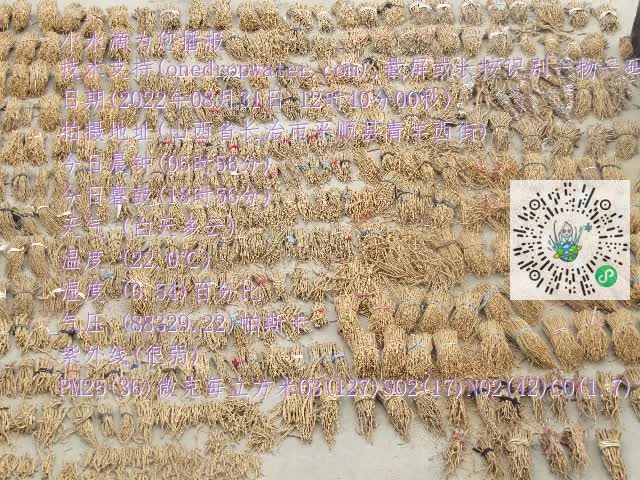 小水滴为您播报
技术支持(onedropwater.com) 截屏或长按识别一物一码
日期(2022年08月31日 12时10分00秒)
拍摄地址(山西省长治市平顺县青羊西街)
今日晨钟(05时56分)
今日暮鼓(18时56分)
天气 (白天多云)
温度 (22.0℃)
湿度 (0.54)百分比
气压 (88329.22)帕斯卡
紫外线(很弱)
PM25(36)微克每立方米O3(127)SO2(17)NO2(42)CO(1.7)